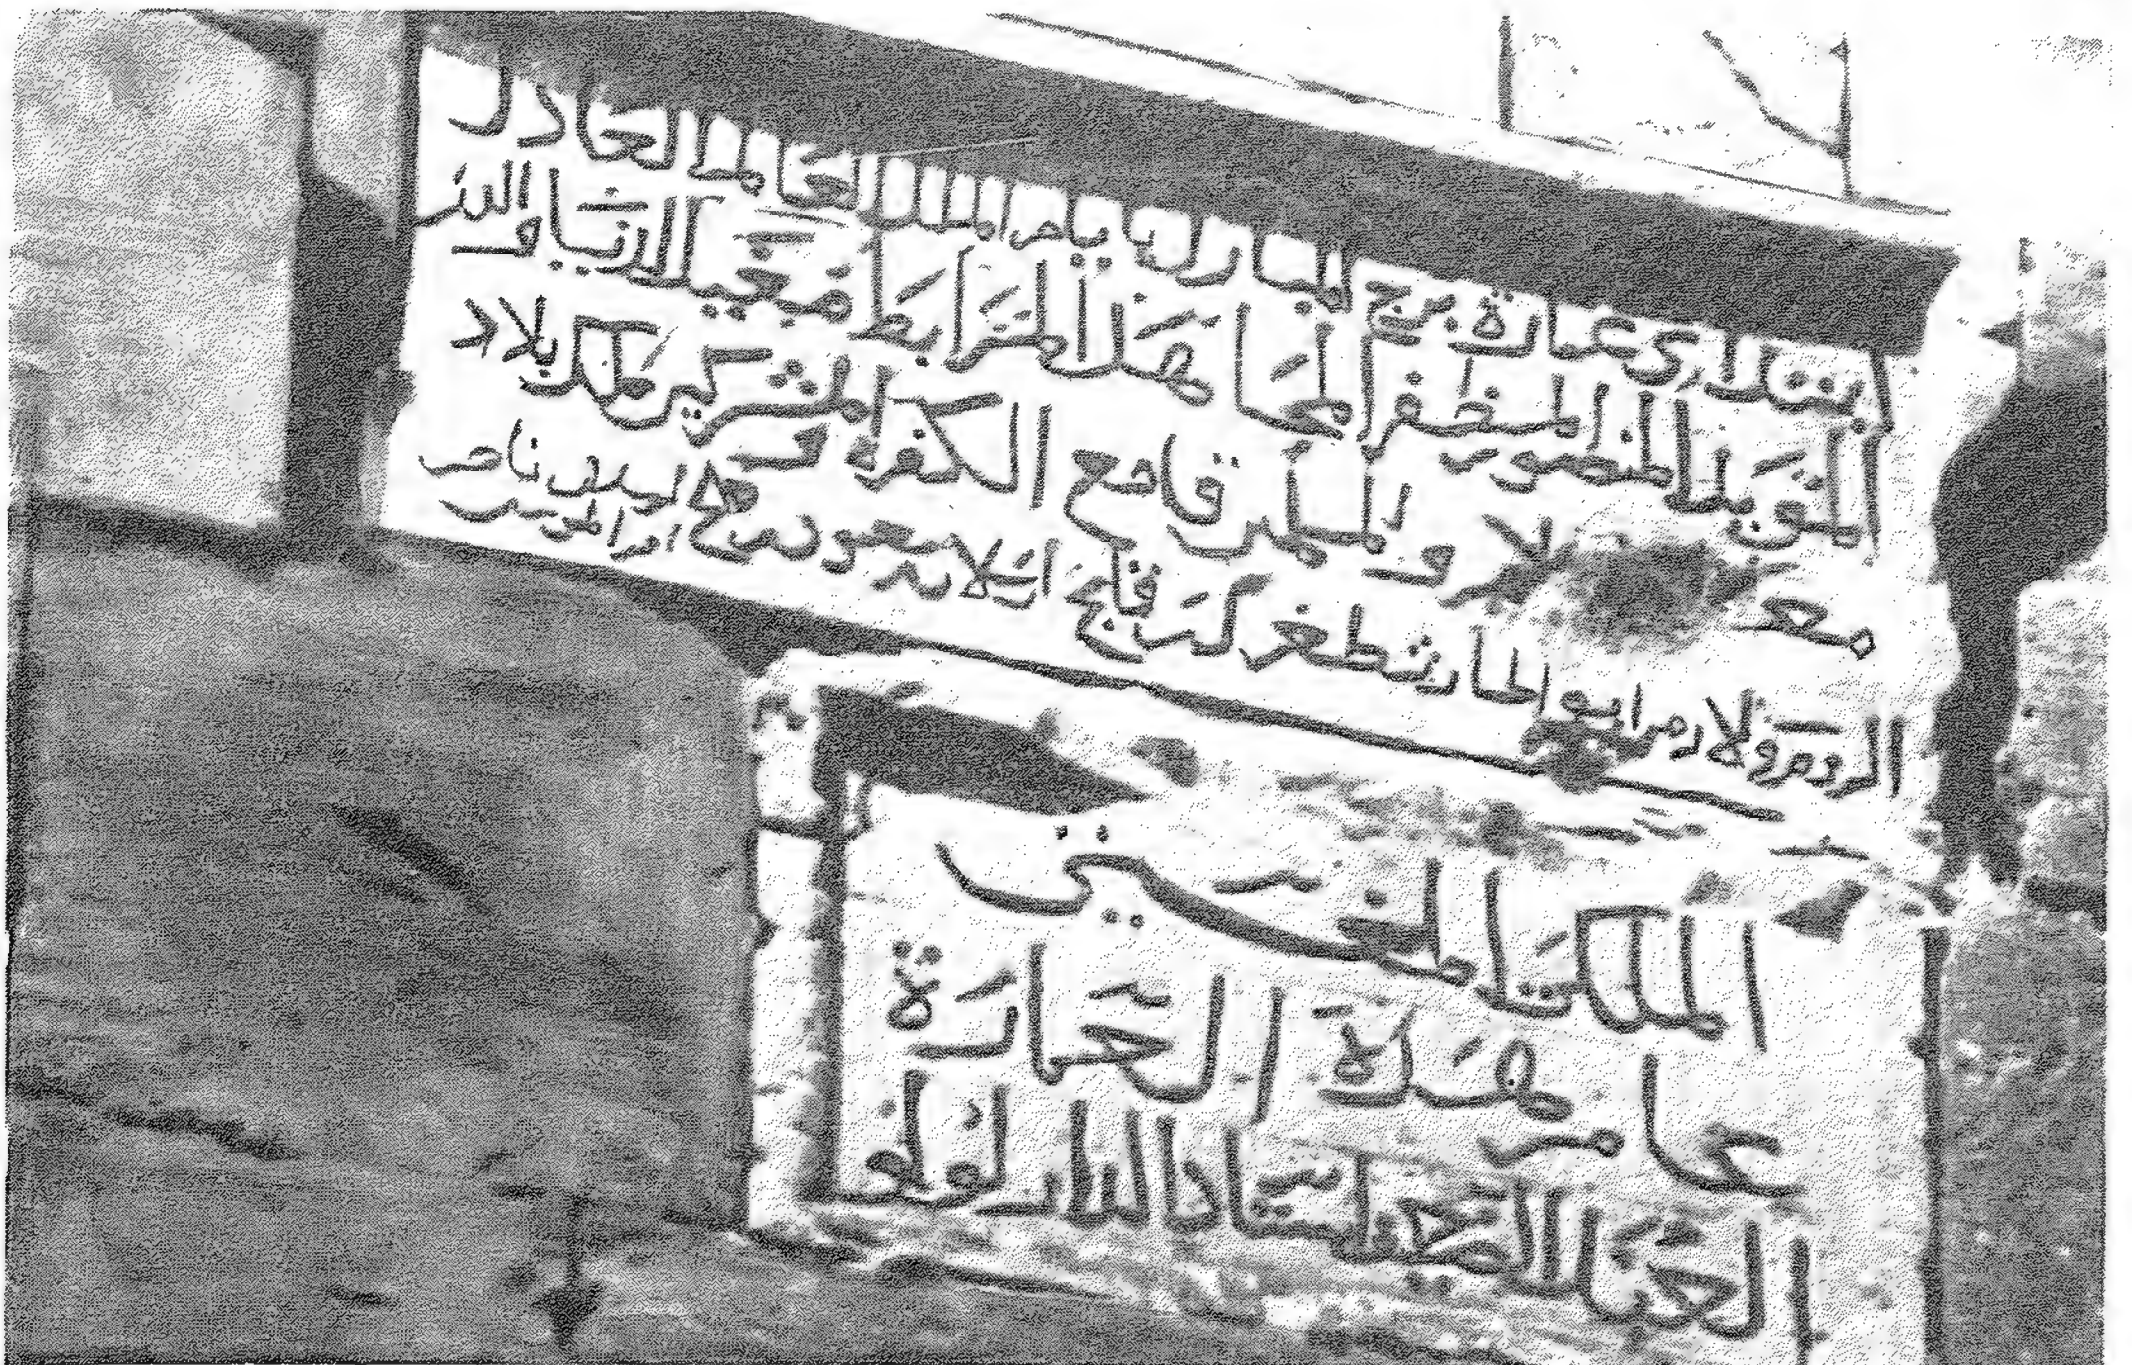 ابتدا في عمارة برج المبارك ايام الملك العالم العادل
المؤيد المنصور المظفر المجاهد المرابط مغيث الدنيا والدين
معز الاسلام والمسلمين قامع الكفرة والمشركين ملك بلاد
الروم والارمن ابو الحارث طغرل بن قلج ارسلان بن مسعود بن قلج ارسلان ناصر امير المؤمنين
الملكي المغيثي
عامر هذه العمارة
العبد الضعيف استاد الدار لولو